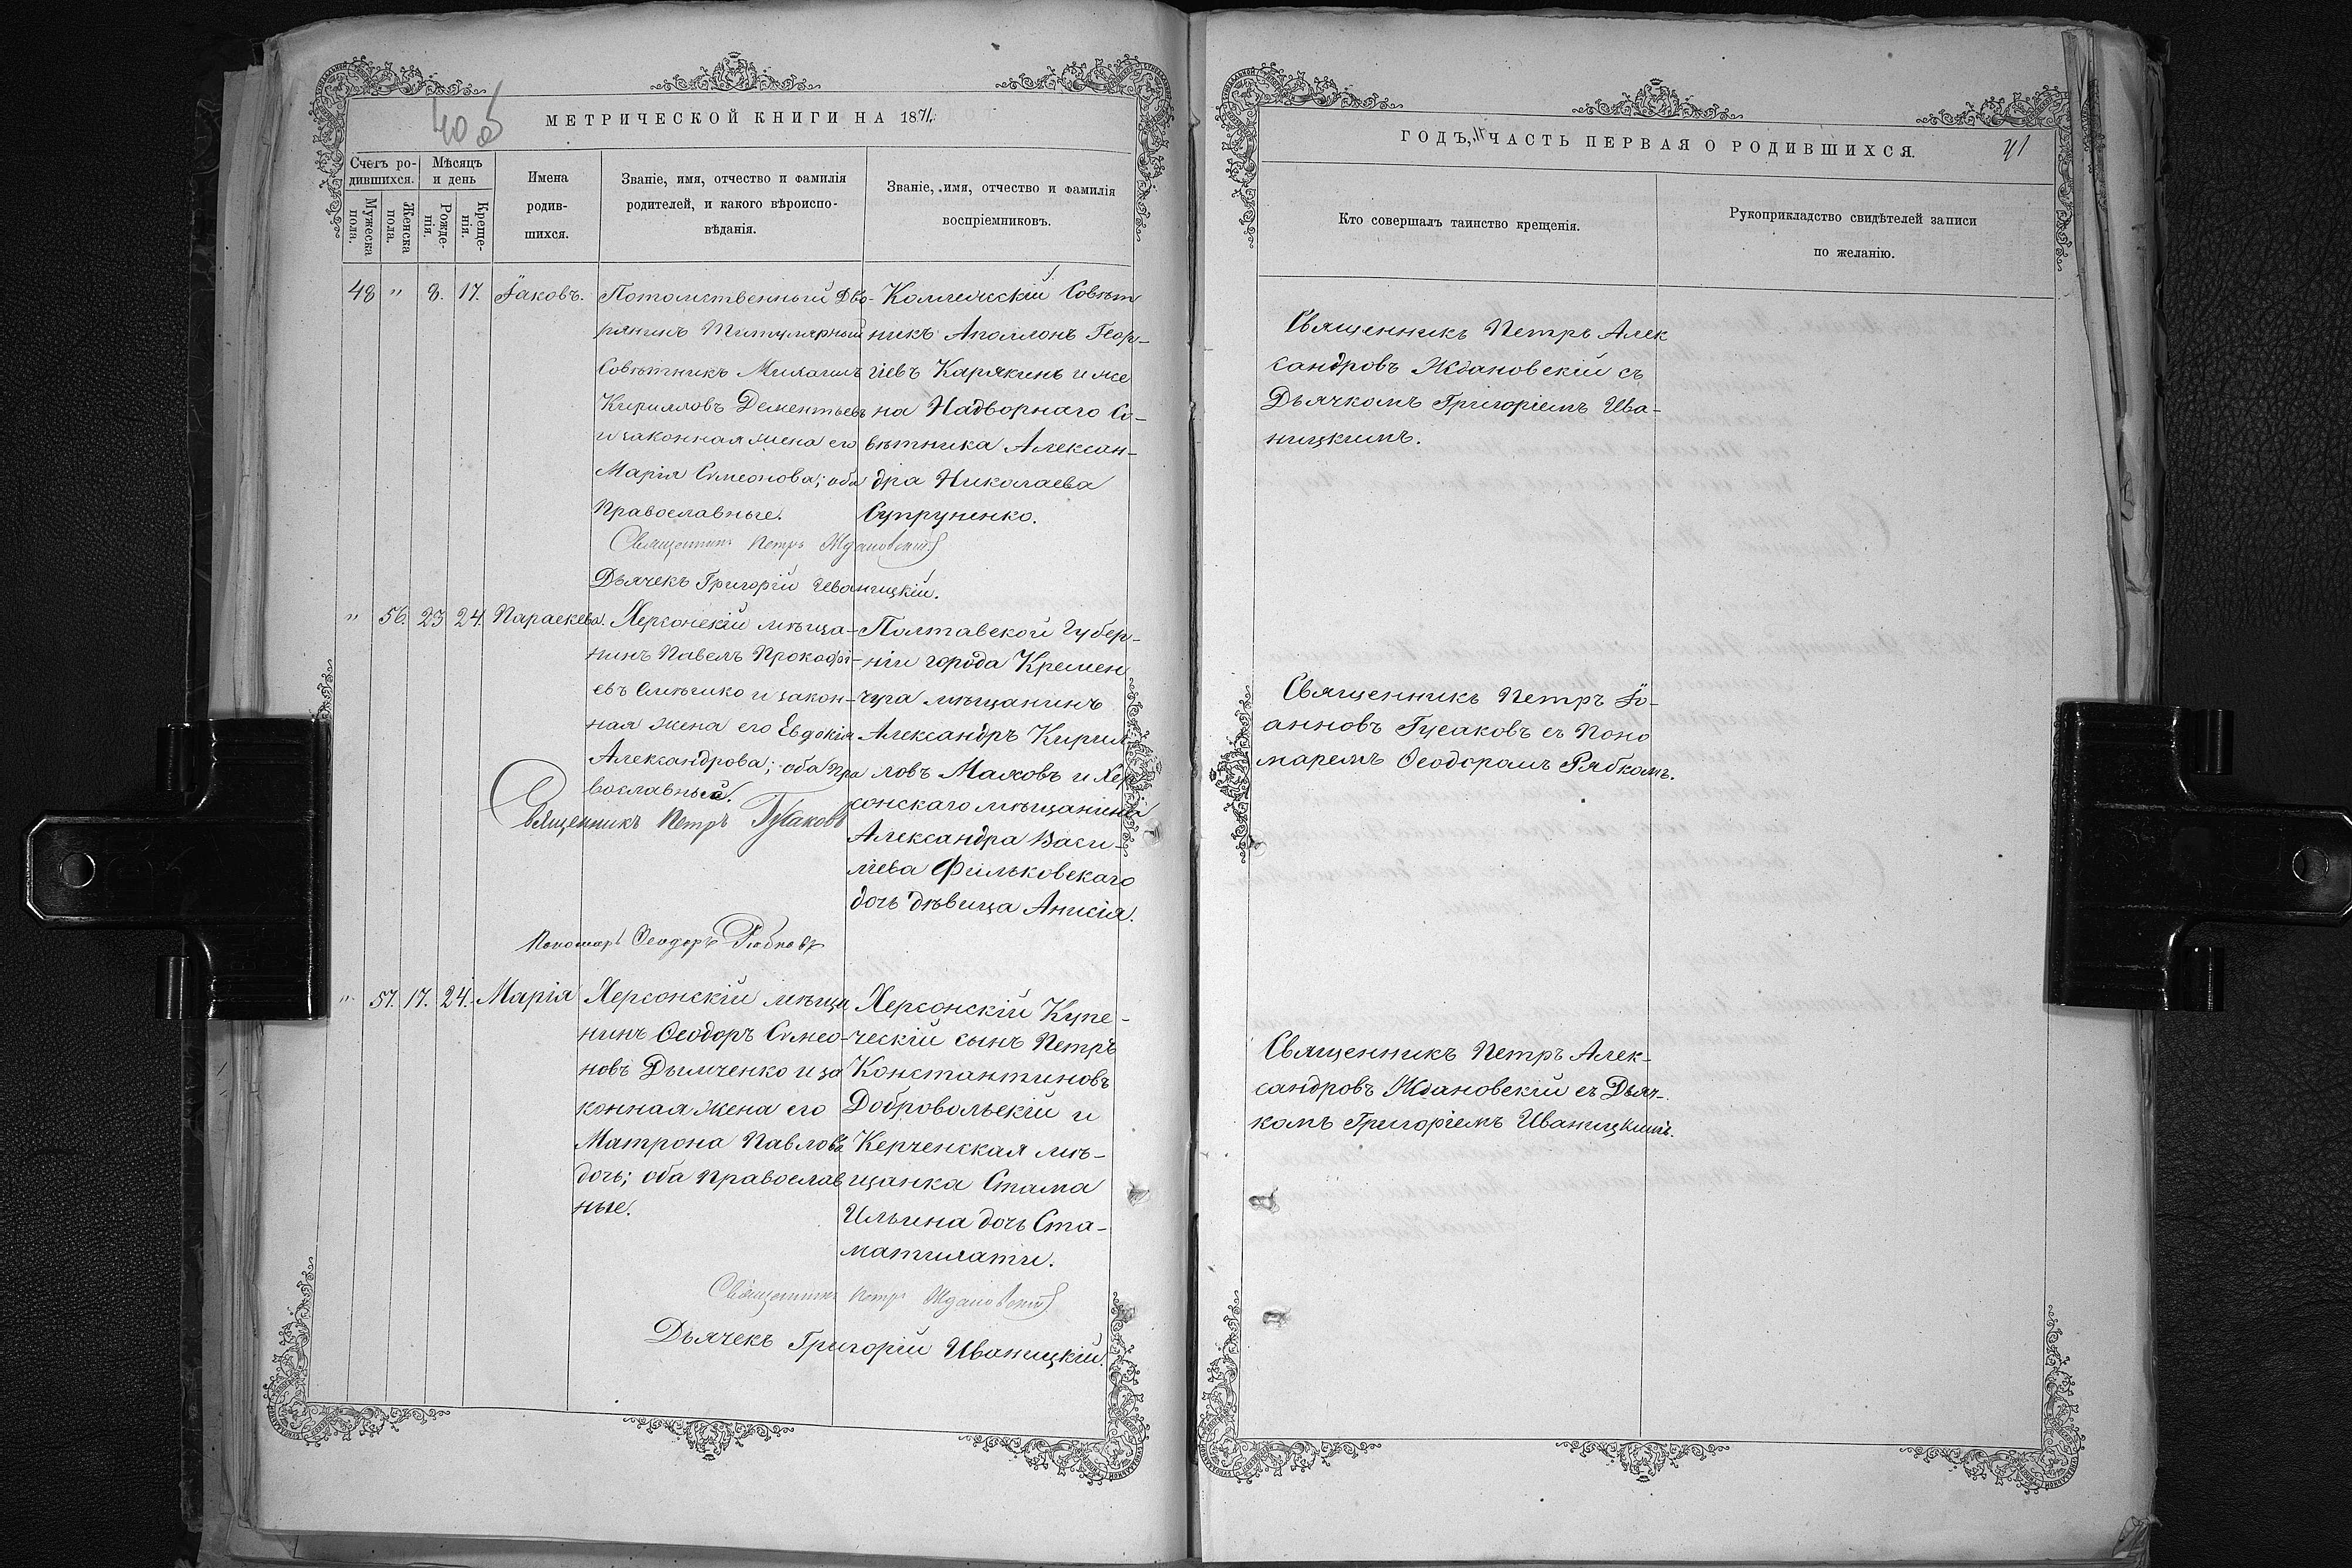 40 об
МЕТРИЧЕСКОЙ КНИГИ НА 1871
Счетъ ро-
дившихся.
Мѣсяцъ
и день
Мужеска
пола.
Женска
пола.
Рожде-
нія.
Креще-
нія.
Имена
родив-
шихся.
Званіе, имя, отчество и фамилія
родителей, и какого вѣроиспо-
вѣданія.
Званіе, имя, отчество и фамилія
воспріемниковъ.
48 " 8. 17. Іаковъ.
Потомственный Дво-
рянинъ Титулярный
Совѣтникъ Михаилъ
Кирилловъ Дементьевъ
и законная жена его
Марія Симеонова; оба
Православные.
Коллежскій Совѣт
никъ Аполлонъ Геор-
гіевъ Карякинъ и же
на Надворнаго Со-
вѣтника Алексан-
дра Николаева
Супруненко.
Священникъ Петръ Ждановскій
Дьячекъ Григорій Иваницкій.
" 56. 23 24. Параскева.
Херсонскій мѣща-
нинъ Павелъ Прокофі-
евъ и закон-
ная жена его Евдокія
Александрова; оба Пра
вославные.
Полтавской Губер-
ніи города Кремен
чуга мѣщанинъ
Александръ Кирил
ловъ Маховъ и Хер
сонскаго мѣщанина
Александра Васи-
ліева Фильковскаго
дочь дѣвица Анисія.
Священникъ Петръ Гусаковъ
Пономарь Ѳеодоръ Рябковъ
" 57. 17. 24. Марія
Херсонскій мѣща
нинъ Ѳеодоръ Симео-
новъ Дымченко и за
конная жена его
Матрона Павлова
дочь; оба Православ
ные.
Херсонскій Купе-
ческій сынъ Петръ
Константиновъ
Добровольскій и
Керченская мѣ-
щанка Стама
Ильина дочь Ста-
матилати.
Священникъ Петръ Ждановскій
Дьячекъ Григорій Иваницкій.
ГОДЪ, ЧАСТЬ ПЕРВАЯ О РОДИВШИХСЯ.
41
Кто совершалъ таинство крещенія.
Рукоприкладство свидѣтелей записи
по желанію.
Священникъ Петръ Алек
сандровъ Ждановскій съ
Дьячкомъ Григоріемъ Ива-
ницкимъ.
Священникъ Петръ Іо-
анновъ Гусаковъ съ Поно
маремъ Ѳеодоромъ Рябкомъ.
Священникъ Петръ Алек-
сандровъ Ждановскій съ Дьяч-
комъ Григоріемъ Иваницкимъ.